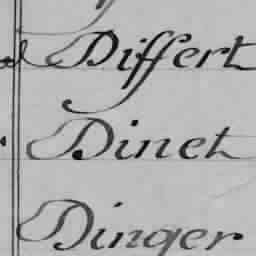 Differt
Dinet
Dinger